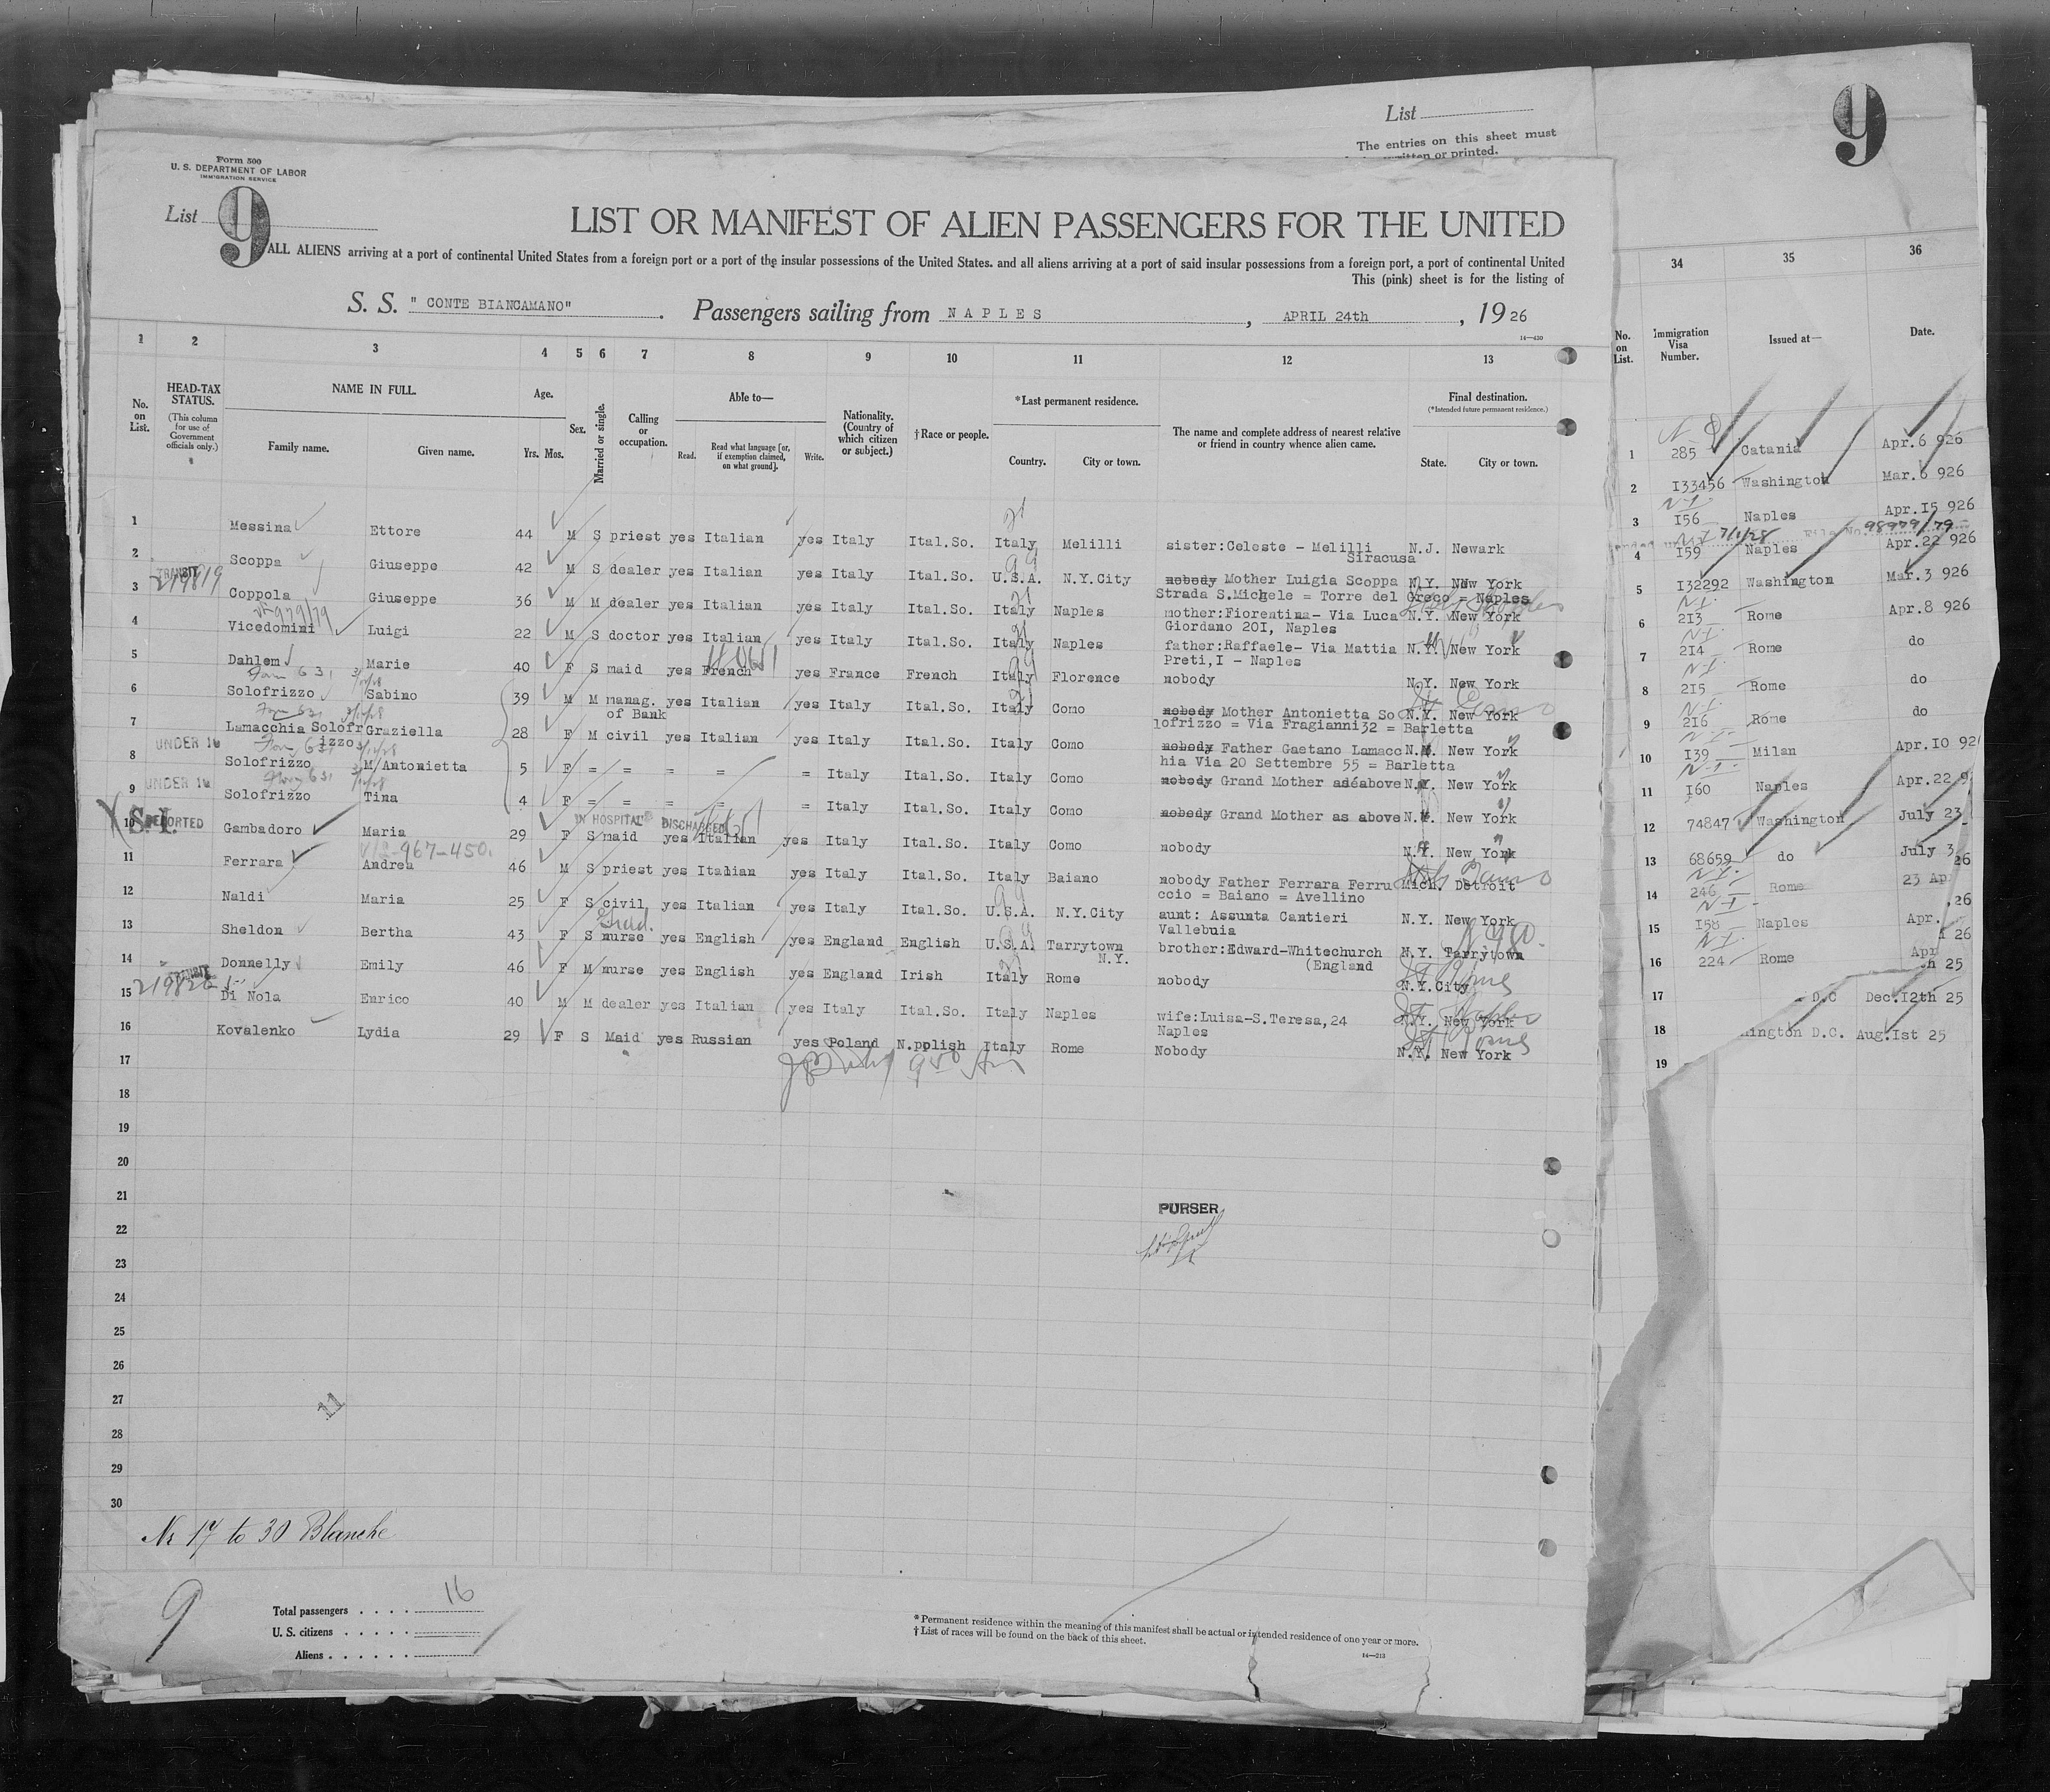 List
The entries on this sheet must
written or printed.
9
Form 500
U. S. DEPARTMENT OF LABOR
IMMIGRATION SERVICE
List 9
LIST OR MANIFEST OF ALIEN PASSENGERS FOR THE UNITED
ALL ALIENS arriving at a port of continental United States from a foreign port or a port of the insular possessions of the United States, and all aliens arriving at a port of said insular possessions from a foreign port, a port of continental United
This (pink) sheet is for the listing of
S. S. " CONTE BIANCAMANO" . Passengers sailing from NAPLES , APRIL 24th , 1926
14—430
1 2 3 4 5 6 7 8 9 10 11 12 13
No. on List.
HEAD-TAX STATUS.
(This column for use of Government officials only.)
NAME IN FULL.
Family name. Given name.
Age.
Yrs. Mos.
Sex.
Married or single.
Calling or occupation.
Able to—
Read. Read what language [or, if exemption claimed, on what ground]. Write.
Nationality. (Country of which citizen or subject.)
†Race or people.
*Last permanent residence.
Country. City or town.
The name and complete address of nearest relative or friend in country whence alien came.
Final destination.
(*Intended future permanent residence.)
State. City or town.
1 Messina Ettore 44 M S priest yes Italian yes Italy Ital.So. Italy Melilli sister:Celeste - Melilli N.J. Newark
Siracusa
2 Scoppa Giuseppe 42 M S dealer yes Italian yes Italy Ital.So. U.S.A. N.Y.City nobody Mother Luigia Scoppa N.Y. New York
Strada S.Michele = Torre del Greco = Naples
TRANSIT
219819
3 Coppola Giuseppe 36 M M dealer yes Italian yes Italy Ital.So. Italy Naples mother:Fiorentina- Via Luca N.Y. New York
Giordano 20I, Naples
979/79
4 Vicedomini Luigi 22 M S doctor yes Italian yes Italy Ital.So. Italy Naples father:Raffaele- Via Mattia N.Y. New York
Preti,I - Naples
5 Dahlem Marie 40 F S maid yes French yes France French Italy Florence nobody N.Y. New York
Form 631
6 Solofrizzo Sabino 39 M M manag. yes Italian yes Italy Ital.So. Italy Como nobody Mother Antonietta So N.Y. New York
of Bank lofrizzo = Via Fragianni32 = Barletta
Form 631
7 Lamacchia Solofr Graziella 28 F M civil yes Italian yes Italy Ital.So. Italy Como nobody Father Gaetano Lamacc N.Y. New York
izzo hia Via 20 Settembre 55 = Barletta
UNDER 16 Form 631
8 Solofrizzo M/Antonietta 5 F = = = = = Italy Ital.So. Italy Como nobody Grand Mother as above N.Y. New York
UNDER 16 Form 631
9 Solofrizzo Tina 4 F = = = = = Italy Ital.So. Italy Como nobody Grand Mother as above N.Y. New York
S.I. DEPORTED IN HOSPITAL DISCHARGED
10 Gambadoro Maria 29 F S maid yes Italian yes Italy Ital.So. Italy Como nobody N.Y. New York
967-450
11 Ferrara Andrea 46 M S priest yes Italian yes Italy Ital.So. Italy Baiano nobody Father Ferrara Ferru Mich. Detroit
ccio = Baiano = Avellino
12 Naldi Maria 25 F S civil yes Italian yes Italy Ital.So. U.S.A. N.Y.City aunt: Assunta Cantieri N.Y. New York
Vallebuia
Grad.
13 Sheldon Bertha 43 F S nurse yes English yes England English U.S.A. Tarrytown brother:Edward-Whitechurch N.Y. Tarrytown
N.Y. (England
14 Donnelly Emily 46 F M nurse yes English yes England Irish Italy Rome nobody N.Y.City
TRANSIT
219820
15 Di Nola Enrico 40 M M dealer yes Italian yes Italy Ital.So. Italy Naples wife:Luisa-S.Teresa,24 N.Y. New York
Naples
16 Kovalenko Lydia 29 F S Maid yes Russian yes Poland N.polish Italy Rome Nobody N.Y. New York
17
18
19
20
21
PURSER
22
23
24
25
26
27
11
28
29
30
Nr 17 to 30 Blanche
9
Total passengers . . . . 16
U. S. citizens . . . . .
Aliens . . . . . .
* Permanent residence within the meaning of this manifest shall be actual or intended residence of one year or more.
† List of races will be found on the back of this sheet.
14—213
34 35 36
No. on List. Immigration Visa Number. Issued at— Date.
1 285 Catania Apr.6 926
2 I33456 Washington Mar.6 926
3 I56 Naples Apr.I5 926
7/1/28 File No. 98979/79
4 I59 Naples Apr.22 926
5 I32292 Washington Mar.3 926
6 2I3 Rome Apr.8 926
7 2I4 Rome do
8 2I5 Rome do
9 2I6 Rome do
10 I39 Milan Apr.I0 92
11 I60 Naples Apr.22 9
12 74847 Washington July 23
13 68659 do July 3
26
14 246 Rome 23 Ap
26
15 I58 Naples Apr.
26
16 224 Rome Apr
th 25
17 D.C Dec.I2th 25
18 ington D.C. Aug.Ist 25
19